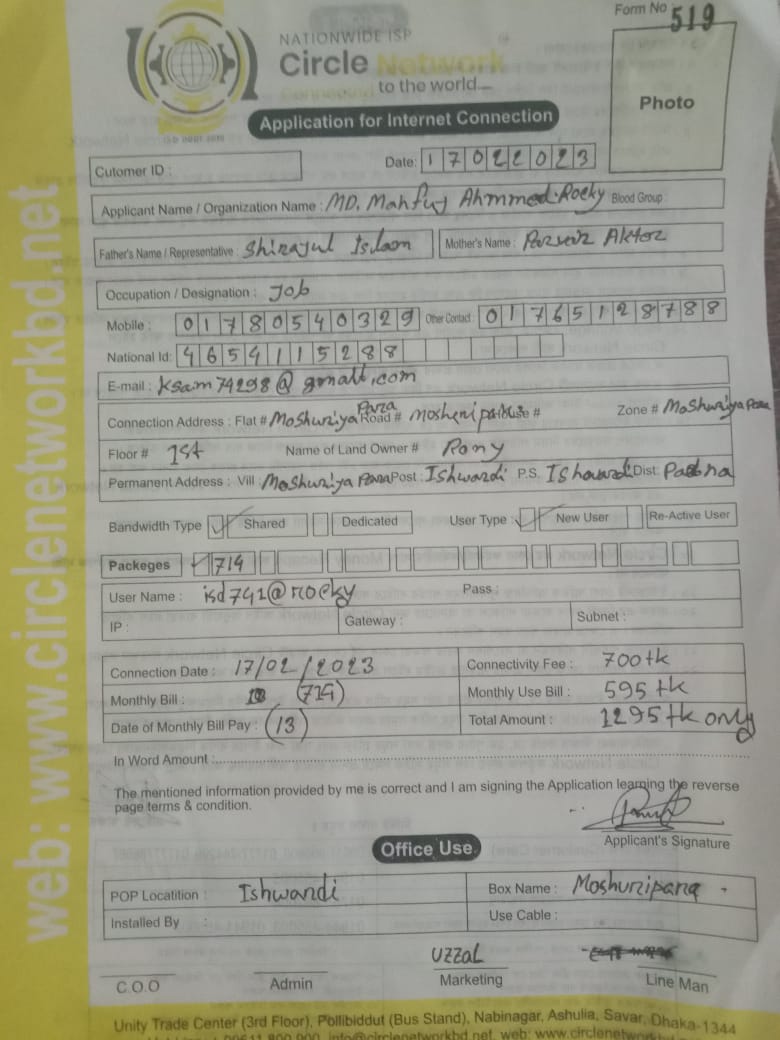 Form No 519
NATIONWIDE ISP
Circle Network
to the world....
Photo
Application for Internet Connection
Cutomer ID :
Date: 17022023
Applicant Name / Organization Name : MD. Mahfuj Ahmmed Rocky Blood Group
Father's Name / Representative : Shirajul Islam Mother's Name : Parvin Aktor
Occupation / Designation : Job
Mobile : 01780540329 Other Contact : 01765128788
National Id: 4654115288
E-mail : Ksam74298@gmail.com
Connection Address : Flat # Moshuriya Para Road # House # Zone # Moshuriya Para
Floor # 1st Name of Land Owner # Rony
Permanent Address : Vill : Moshuriya Para Post : Ishwardi P.S. Ishwardi Dist: Pabna
Bandwidth Type Shared Dedicated User Type : New User Re-Active User
Packeges 714
User Name : isd741@rocky Pass :
IP : Gateway : Subnet :
Connection Date : 17/02/2023 Connectivity Fee : 700tk
Monthly Bill : (714) Monthly Use Bill : 595 tk
Date of Monthly Bill Pay : (13) Total Amount : 1295tk only
In Word Amount :
The mentioned information provided by me is correct and I am signing the Application learning the reverse
page terms & condition.
Applicant's Signature
Office Use
POP Locatition : Ishwardi Box Name : Moshuripara
Installed By : Use Cable :
UZZAL
C.O.O Admin Marketing Line Man
Unity Trade Center (3rd Floor), Pollibiddut (Bus Stand), Nabinagar, Ashulia, Savar, Dhaka-1344
web: www.circlenetworkbd.net